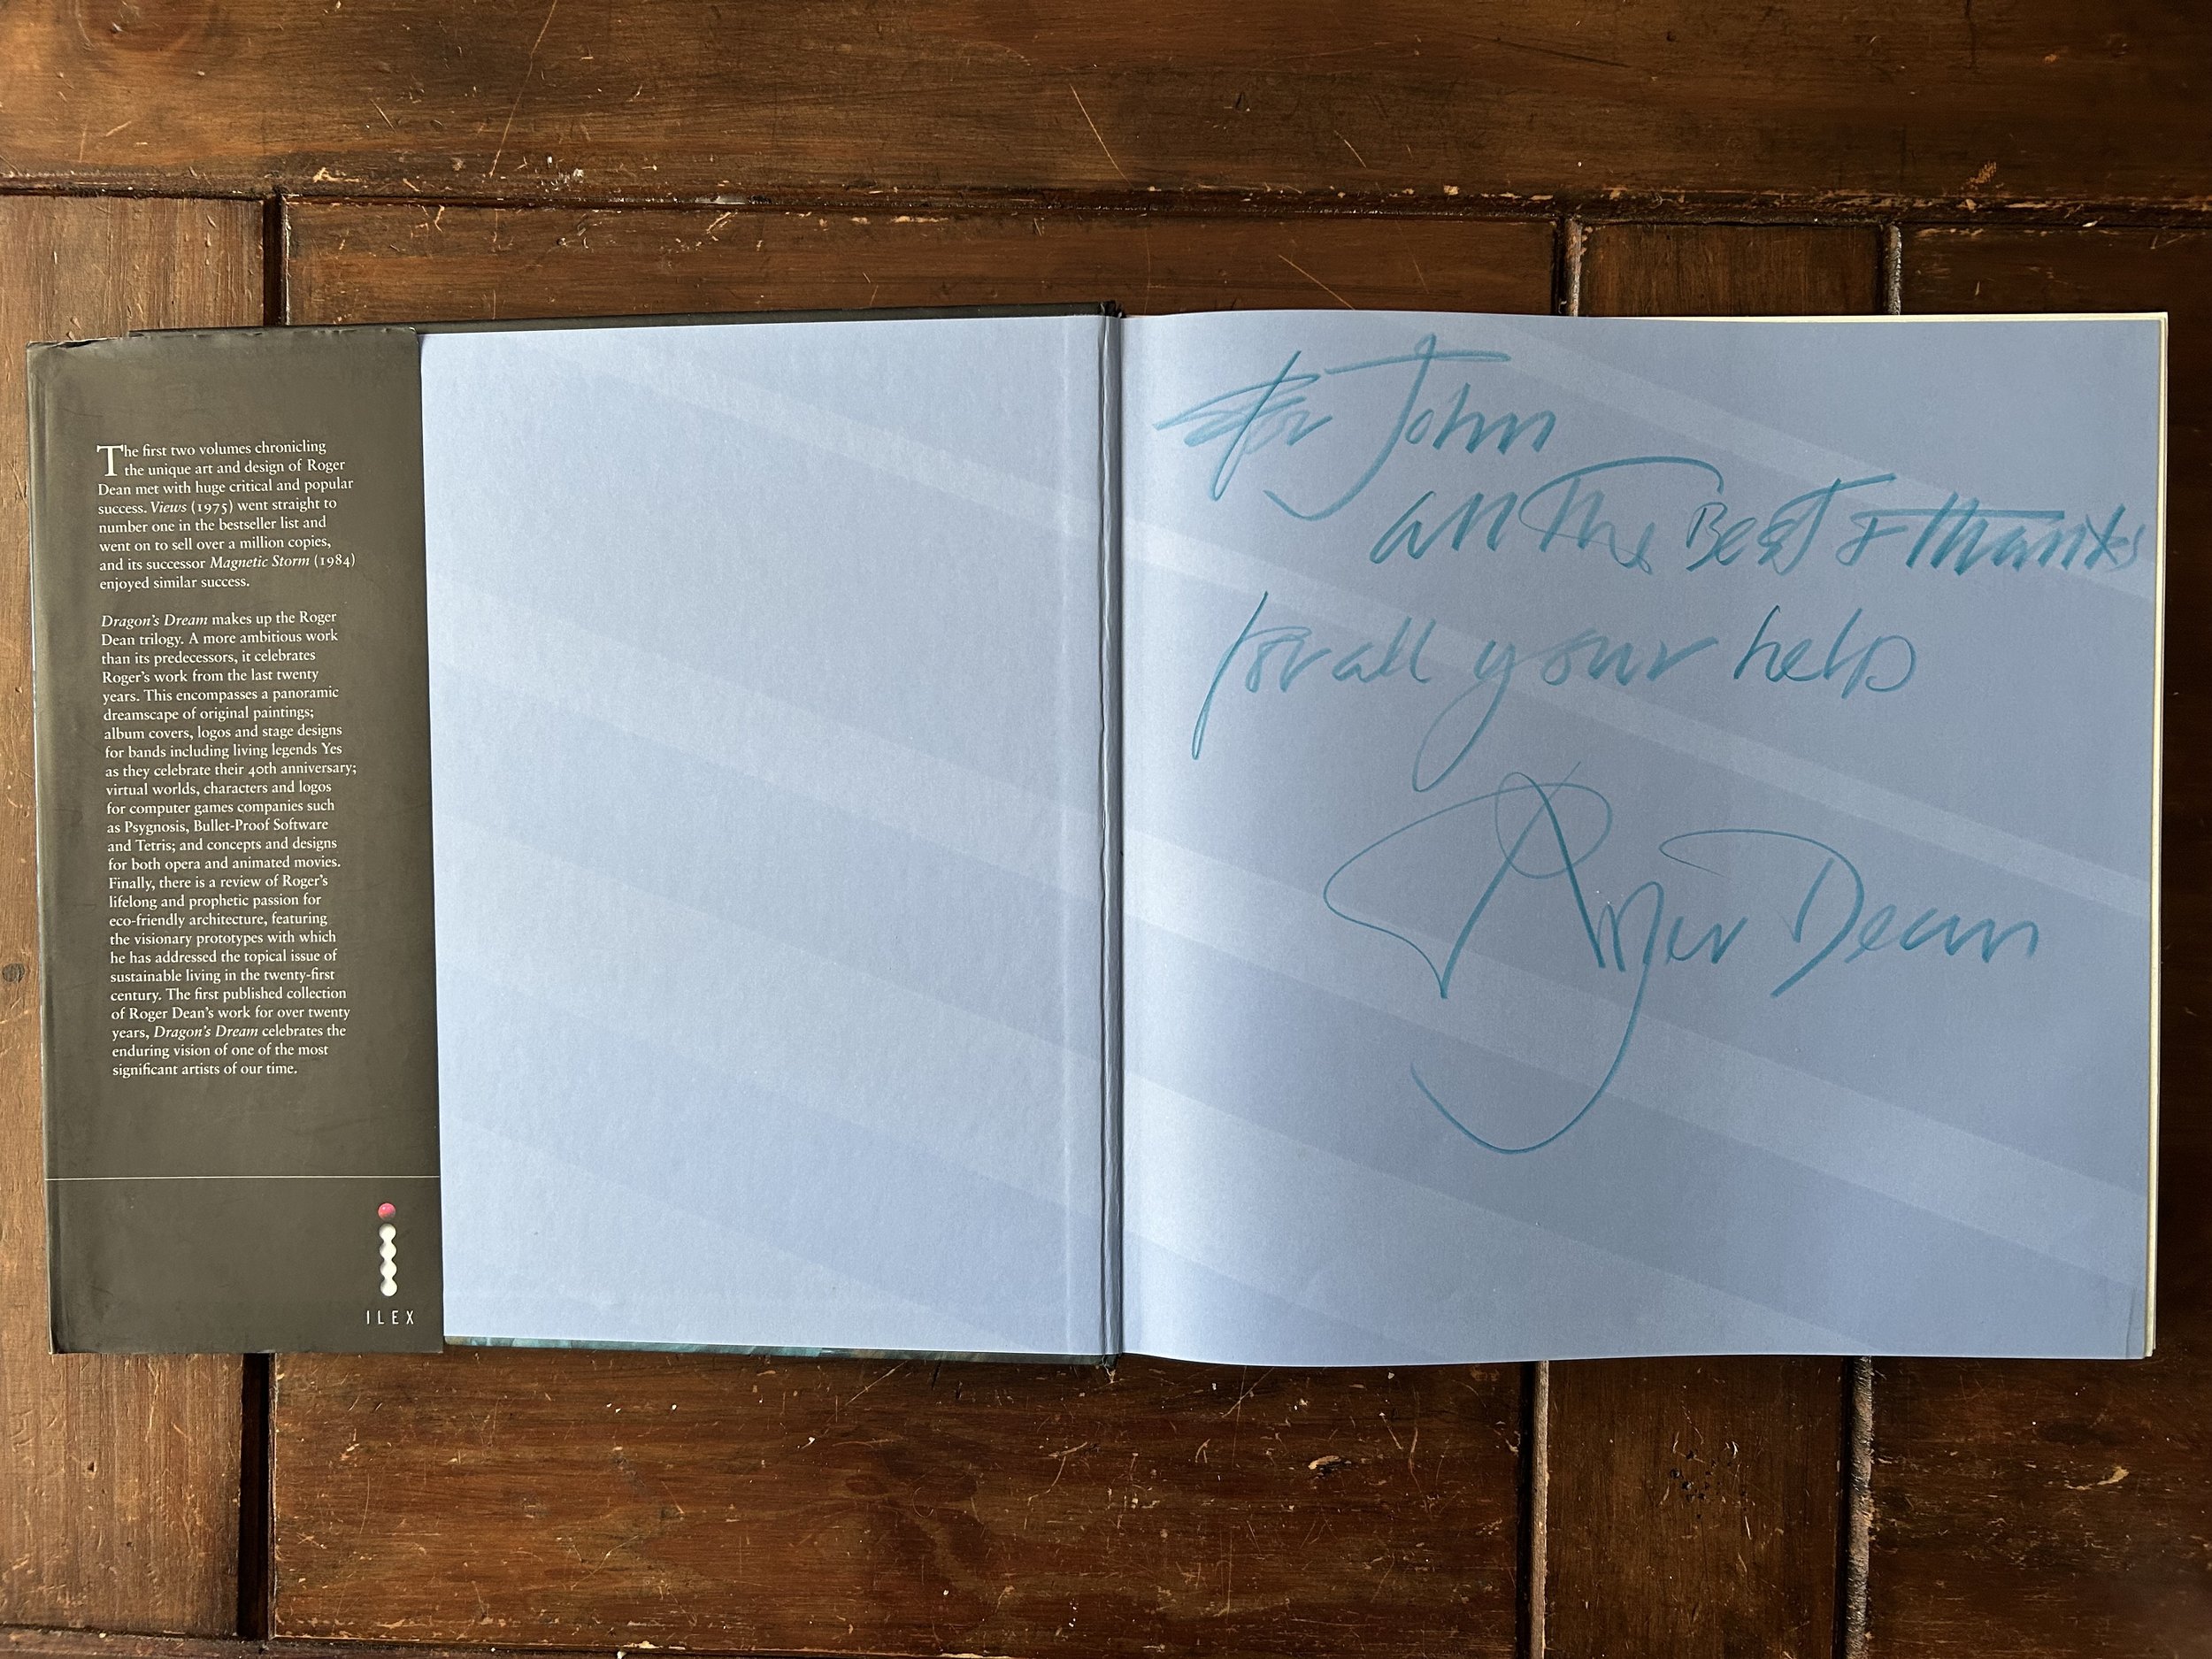 The first two volumes chronicling
the unique art and design of Roger
Dean met with huge critical and popular
success. Views (1975) went straight to
number one in the bestseller list and
went on to sell over a million copies,
and its successor Magnetic Storm (1984)
enjoyed similar success.
Dragon's Dream makes up the Roger
Dean trilogy. A more ambitious work
than its predecessors, it celebrates
Roger's work from the last twenty
years. This encompasses a panoramic
dreamscape of original paintings;
album covers, logos and stage designs
for bands including living legends Yes
as they celebrate their 40th anniversary;
virtual worlds, characters and logos
for computer games companies such
as Psygnosis, Bullet-Proof Software
and Tetris; and concepts and designs
for both opera and animated movies.
Finally, there is a review of Roger's
lifelong and prophetic passion for
eco-friendly architecture, featuring
the visionary prototypes with which
he has addressed the topical issue of
sustainable living in the twenty-first
century. The first published collection
of Roger Dean's work for over twenty
years, Dragon's Dream celebrates the
enduring vision of one of the most
significant artists of our time.
ILEX
for John
all The Best & thanks
for all your help
Roger Dean